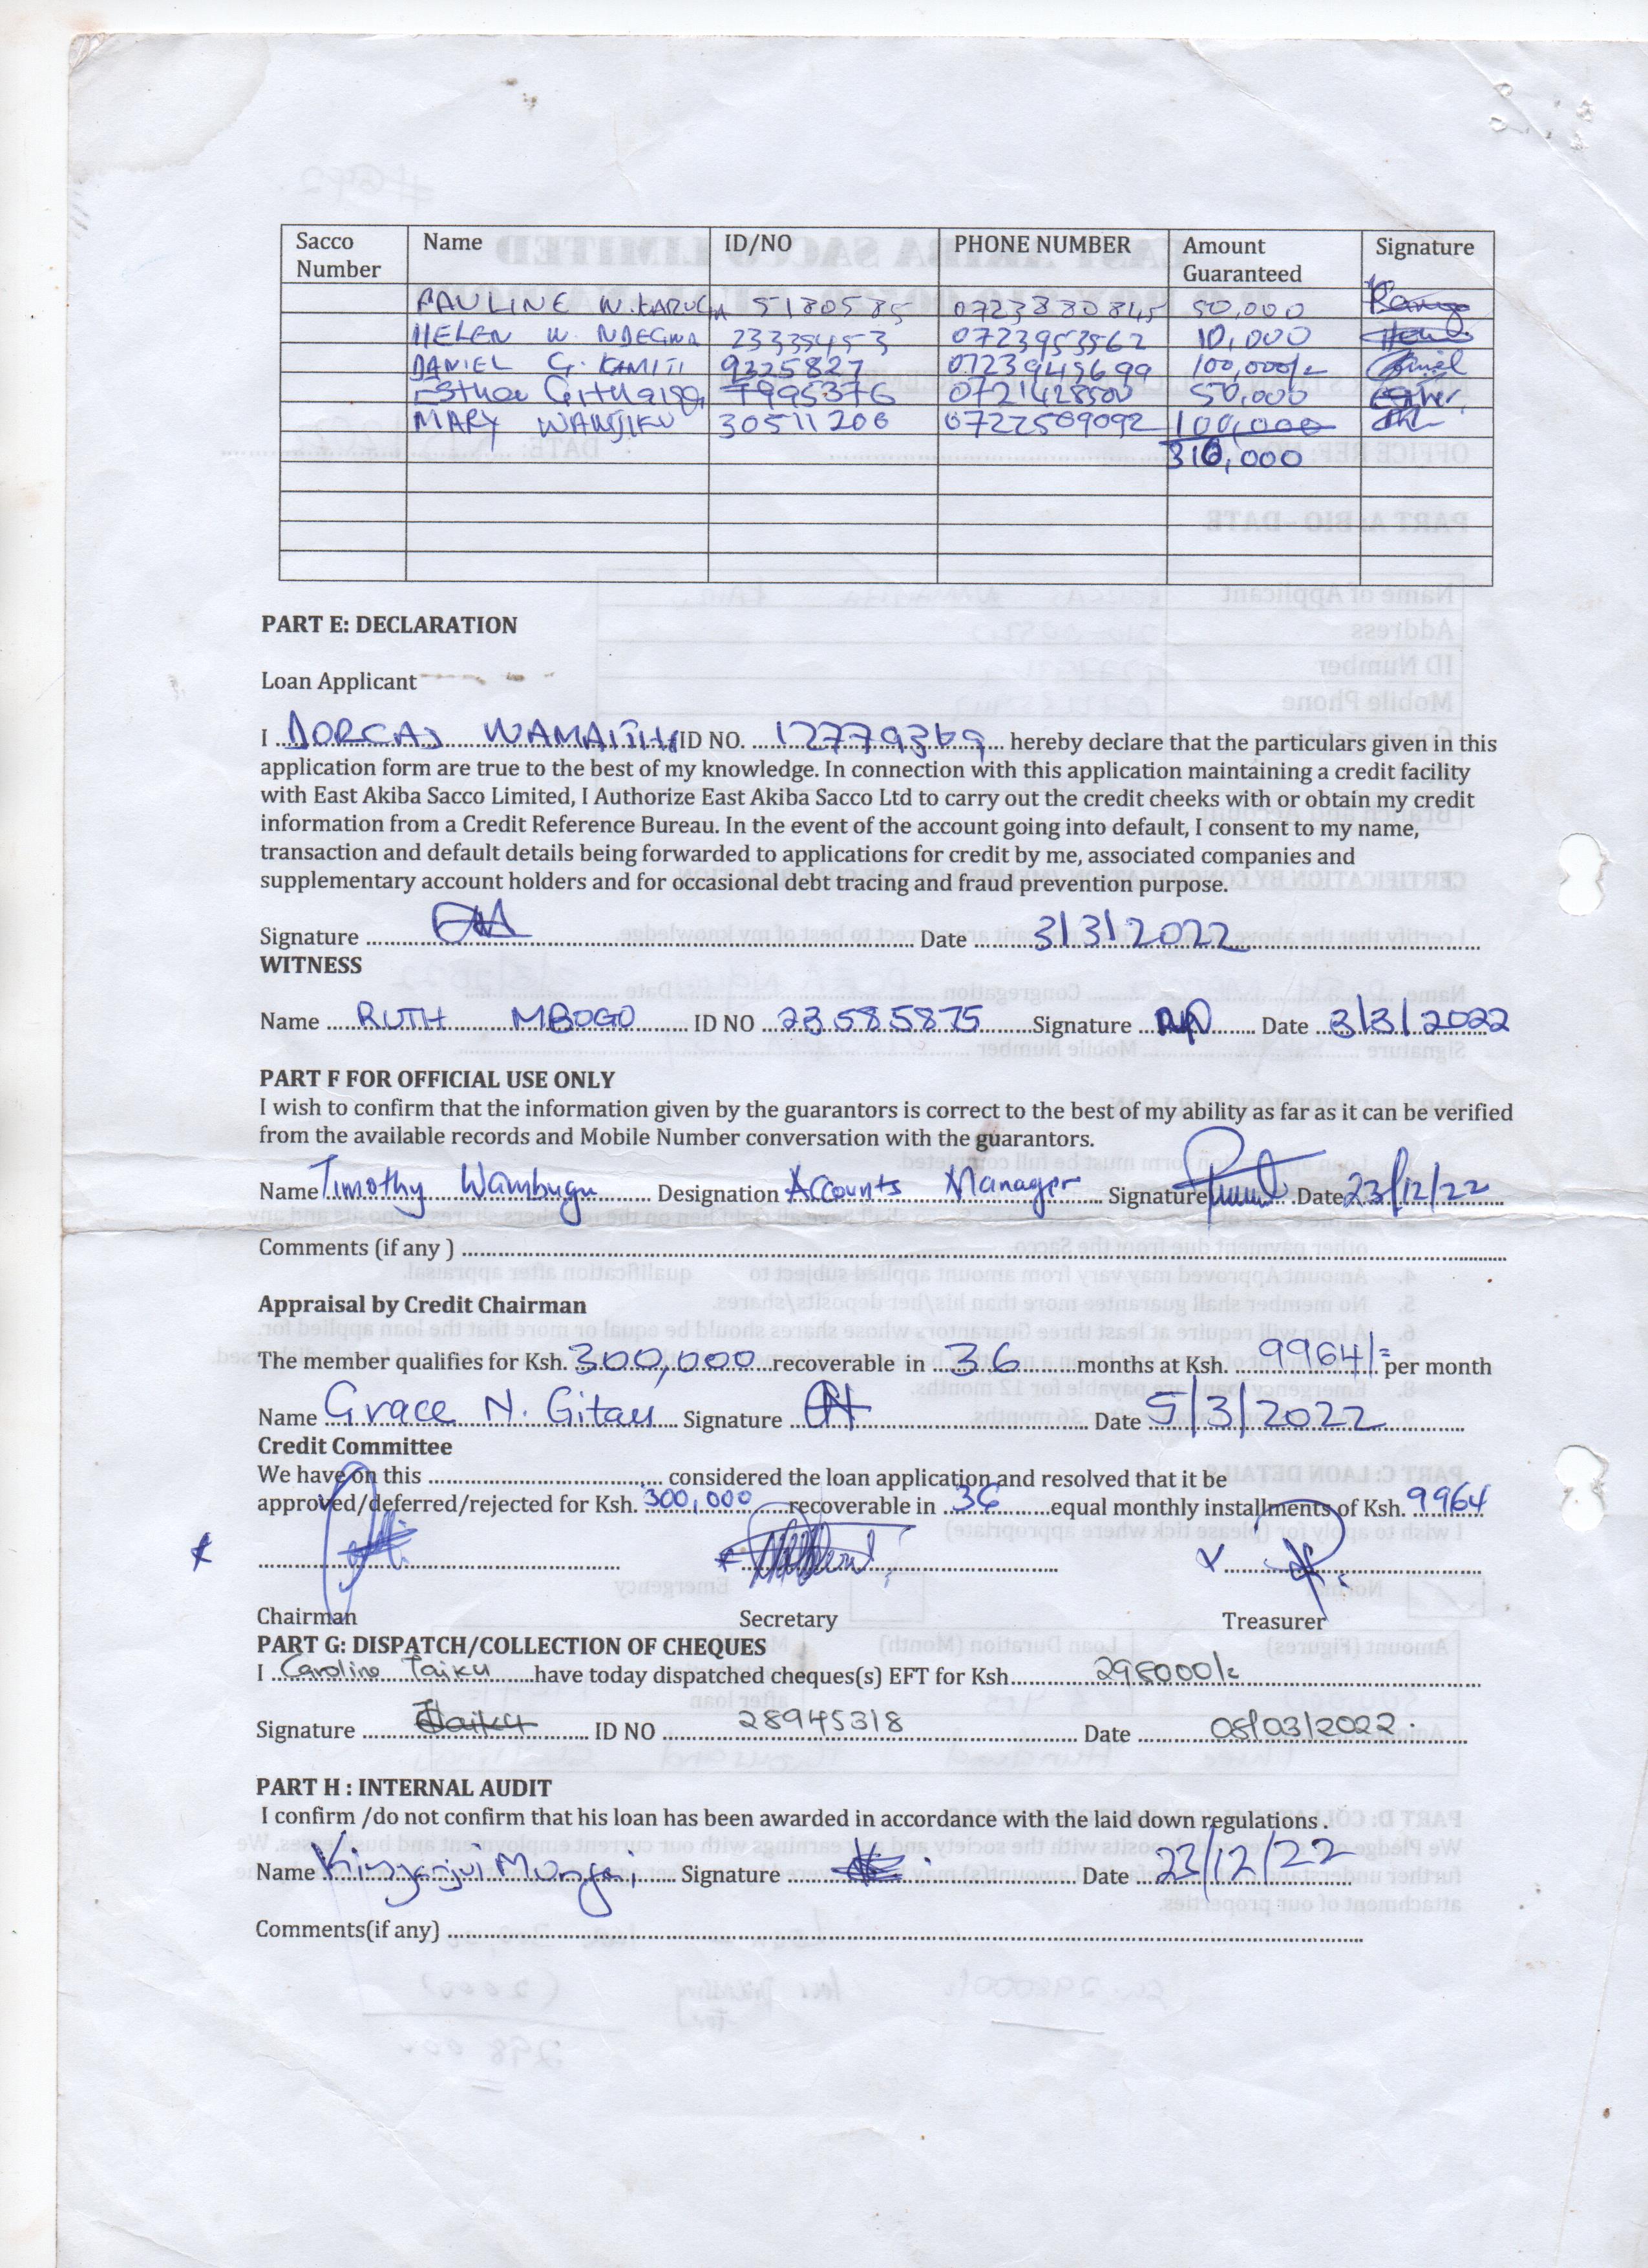 Sacco Number Name ID/NO PHONE NUMBER Amount Guaranteed Signature
PAULINE W. KARUGA 5180585 0723880845 50,000
HELEN W. NDEGWA 23335453 0723953562 10,000
DANIEL G. KAMITI 9325827 0723949699 100,000/=
Esther Githaiga 7995376 0721428500 50,000 Esther
MARY WANJIKU 30511206 0722509092 100,000
310,000
PART E: DECLARATION
Loan Applicant
I DORCAS WAMAITHA ID NO. 12779369 hereby declare that the particulars given in this
application form are true to the best of my knowledge. In connection with this application maintaining a credit facility
with East Akiba Sacco Limited, I Authorize East Akiba Sacco Ltd to carry out the credit cheeks with or obtain my credit
information from a Credit Reference Bureau. In the event of the account going into default, I consent to my name,
transaction and default details being forwarded to applications for credit by me, associated companies and
supplementary account holders and for occasional debt tracing and fraud prevention purpose.
Signature Date 3/3/2022
WITNESS
Name RUTH MBOGO ID NO 23585875 Signature Date 3/3/2022
PART F FOR OFFICIAL USE ONLY
I wish to confirm that the information given by the guarantors is correct to the best of my ability as far as it can be verified
from the available records and Mobile Number conversation with the guarantors.
Name Timothy Wambugu Designation Accounts Manager Signature Date 23/12/22
Comments (if any )
Appraisal by Credit Chairman
The member qualifies for Ksh. 300,000 recoverable in 36 months at Ksh. 9964/= per month
Name Grace N. Gitau Signature Date 5/3/2022
Credit Committee
We have on this considered the loan application and resolved that it be
approved/deferred/rejected for Ksh. 300,000 recoverable in 36 equal monthly installments of Ksh. 9964
Chairman Secretary Treasurer
PART G: DISPATCH/COLLECTION OF CHEQUES
I Caroline Taiku have today dispatched cheques(s) EFT for Ksh 298000/=
Signature Taiku ID NO 28945318 Date 08/03/2022.
PART H : INTERNAL AUDIT
I confirm /do not confirm that his loan has been awarded in accordance with the laid down regulations .
Name Kinyanjui Mungai Signature Date 23/12/22
Comments(if any)